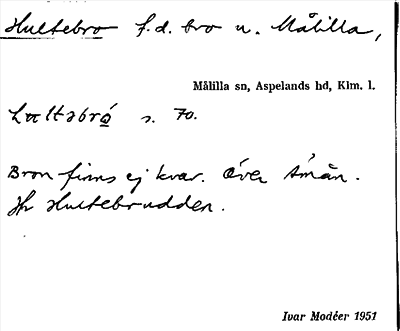 Hultebro f.d. bro u. Målilla,
Målilla sn, Aspelands hd, Klm. l.
s. 70.
Bron finns ej kvar. Över ån.
Hr Hultebrudden.
Ivar Modéer 1951